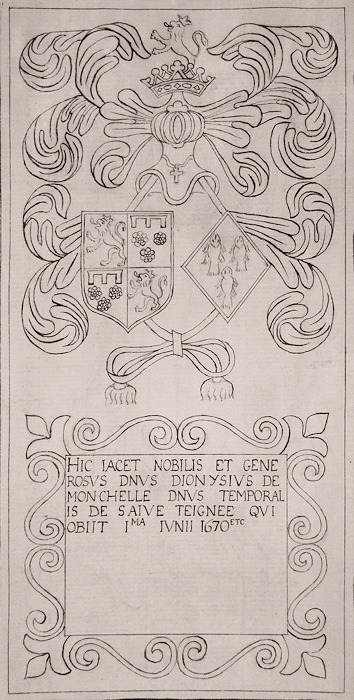 HIC IACET NOBILIS ET GENE
ROSVS DNVS DIONYSIVS DE
MONCHELLE DNVS TEMPORAL
IS DE SAIVE TEIGNEE QVI
OBIIT I^MA IVNII 1670^ETC